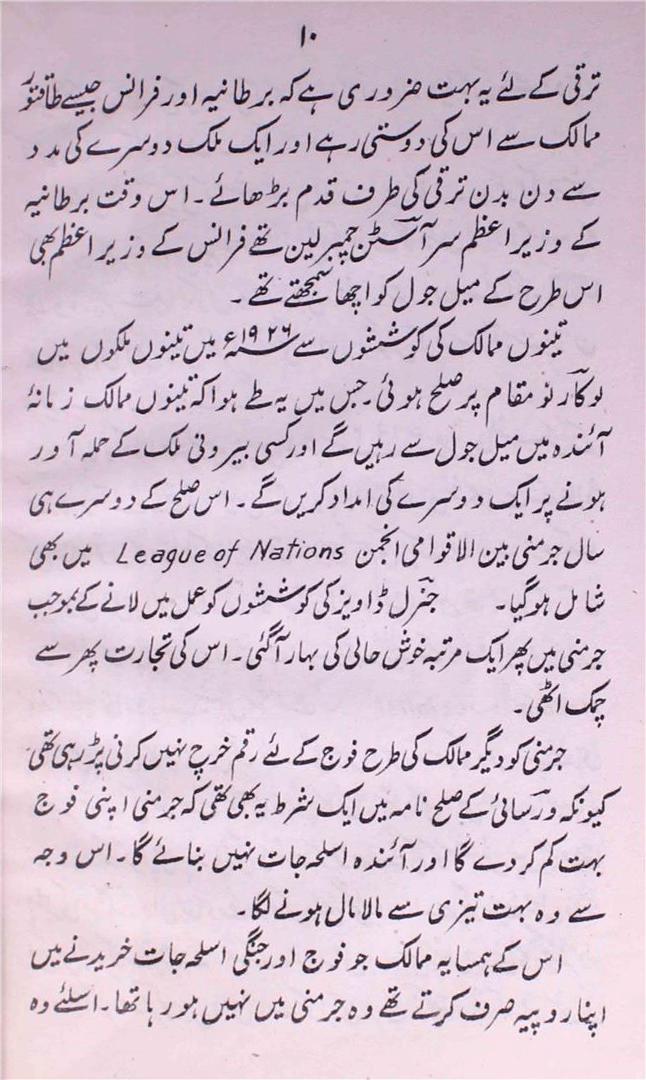 ۱۰
ترقی کے لئے یہ بہت ضروری ہے کہ برطانیہ اور فرانس جیسے طاقتور
ممالک سے اس کی دوستی رہے اور ایک ملک دوسرے کی مدد
سے دن بدن ترقی کی طرف قدم بڑھائے۔ اس وقت برطانیہ
کے وزیر اعظم سر آسٹن چمبرلین تھے فرانس کے وزیر اعظم بھی
اس طرح کے میل جول کو اچھا سمجھتے تھے۔
تینوں ممالک کی کوششوں سے ۱۹۲۶ء میں تینوں ملکوں میں
لوکارنو مقام پر صلح ہوئی۔ جس میں یہ طے ہوا کہ تینوں ممالک زمانۂ
آئندہ میں میل جول سے رہیں گے اور کسی بیرونی ملک کے حملہ آور
ہونے پر ایک دوسرے کی امداد کریں گے۔ اس صلح کے دوسرے ہی
سال جرمنی بین الاقوامی انجمن League of Nations میں بھی
شامل ہوگیا۔ جنرل ڈاویز کی کوششوں کو عمل میں لانے کے بموجب
جرمنی میں پھر ایک مرتبہ خوش حالی کی بہار آگئی۔ اس کی تجارت پھر سے
چمک اٹھی۔
جرمنی کو دیگر ممالک کی طرح فوج کے لئے رقم خرچ نہیں کرنی پڑ رہی تھی
کیونکہ ورسائی کے صلح نامہ میں ایک شرط یہ بھی تھی کہ جرمنی اپنی فوج
بہت کم کر دے گا اور آئندہ اسلحہ جات نہیں بنائے گا۔ اس وجہ
سے وہ بہت تیزی سے مالا مال ہونے لگا۔
اس کے ہمسایہ ممالک جو فوج اور جنگی اسلحہ جات خریدنے میں
اپنا روپیہ صرف کرتے تھے وہ جرمنی میں نہیں ہو رہا تھا۔ اسلئے وہ